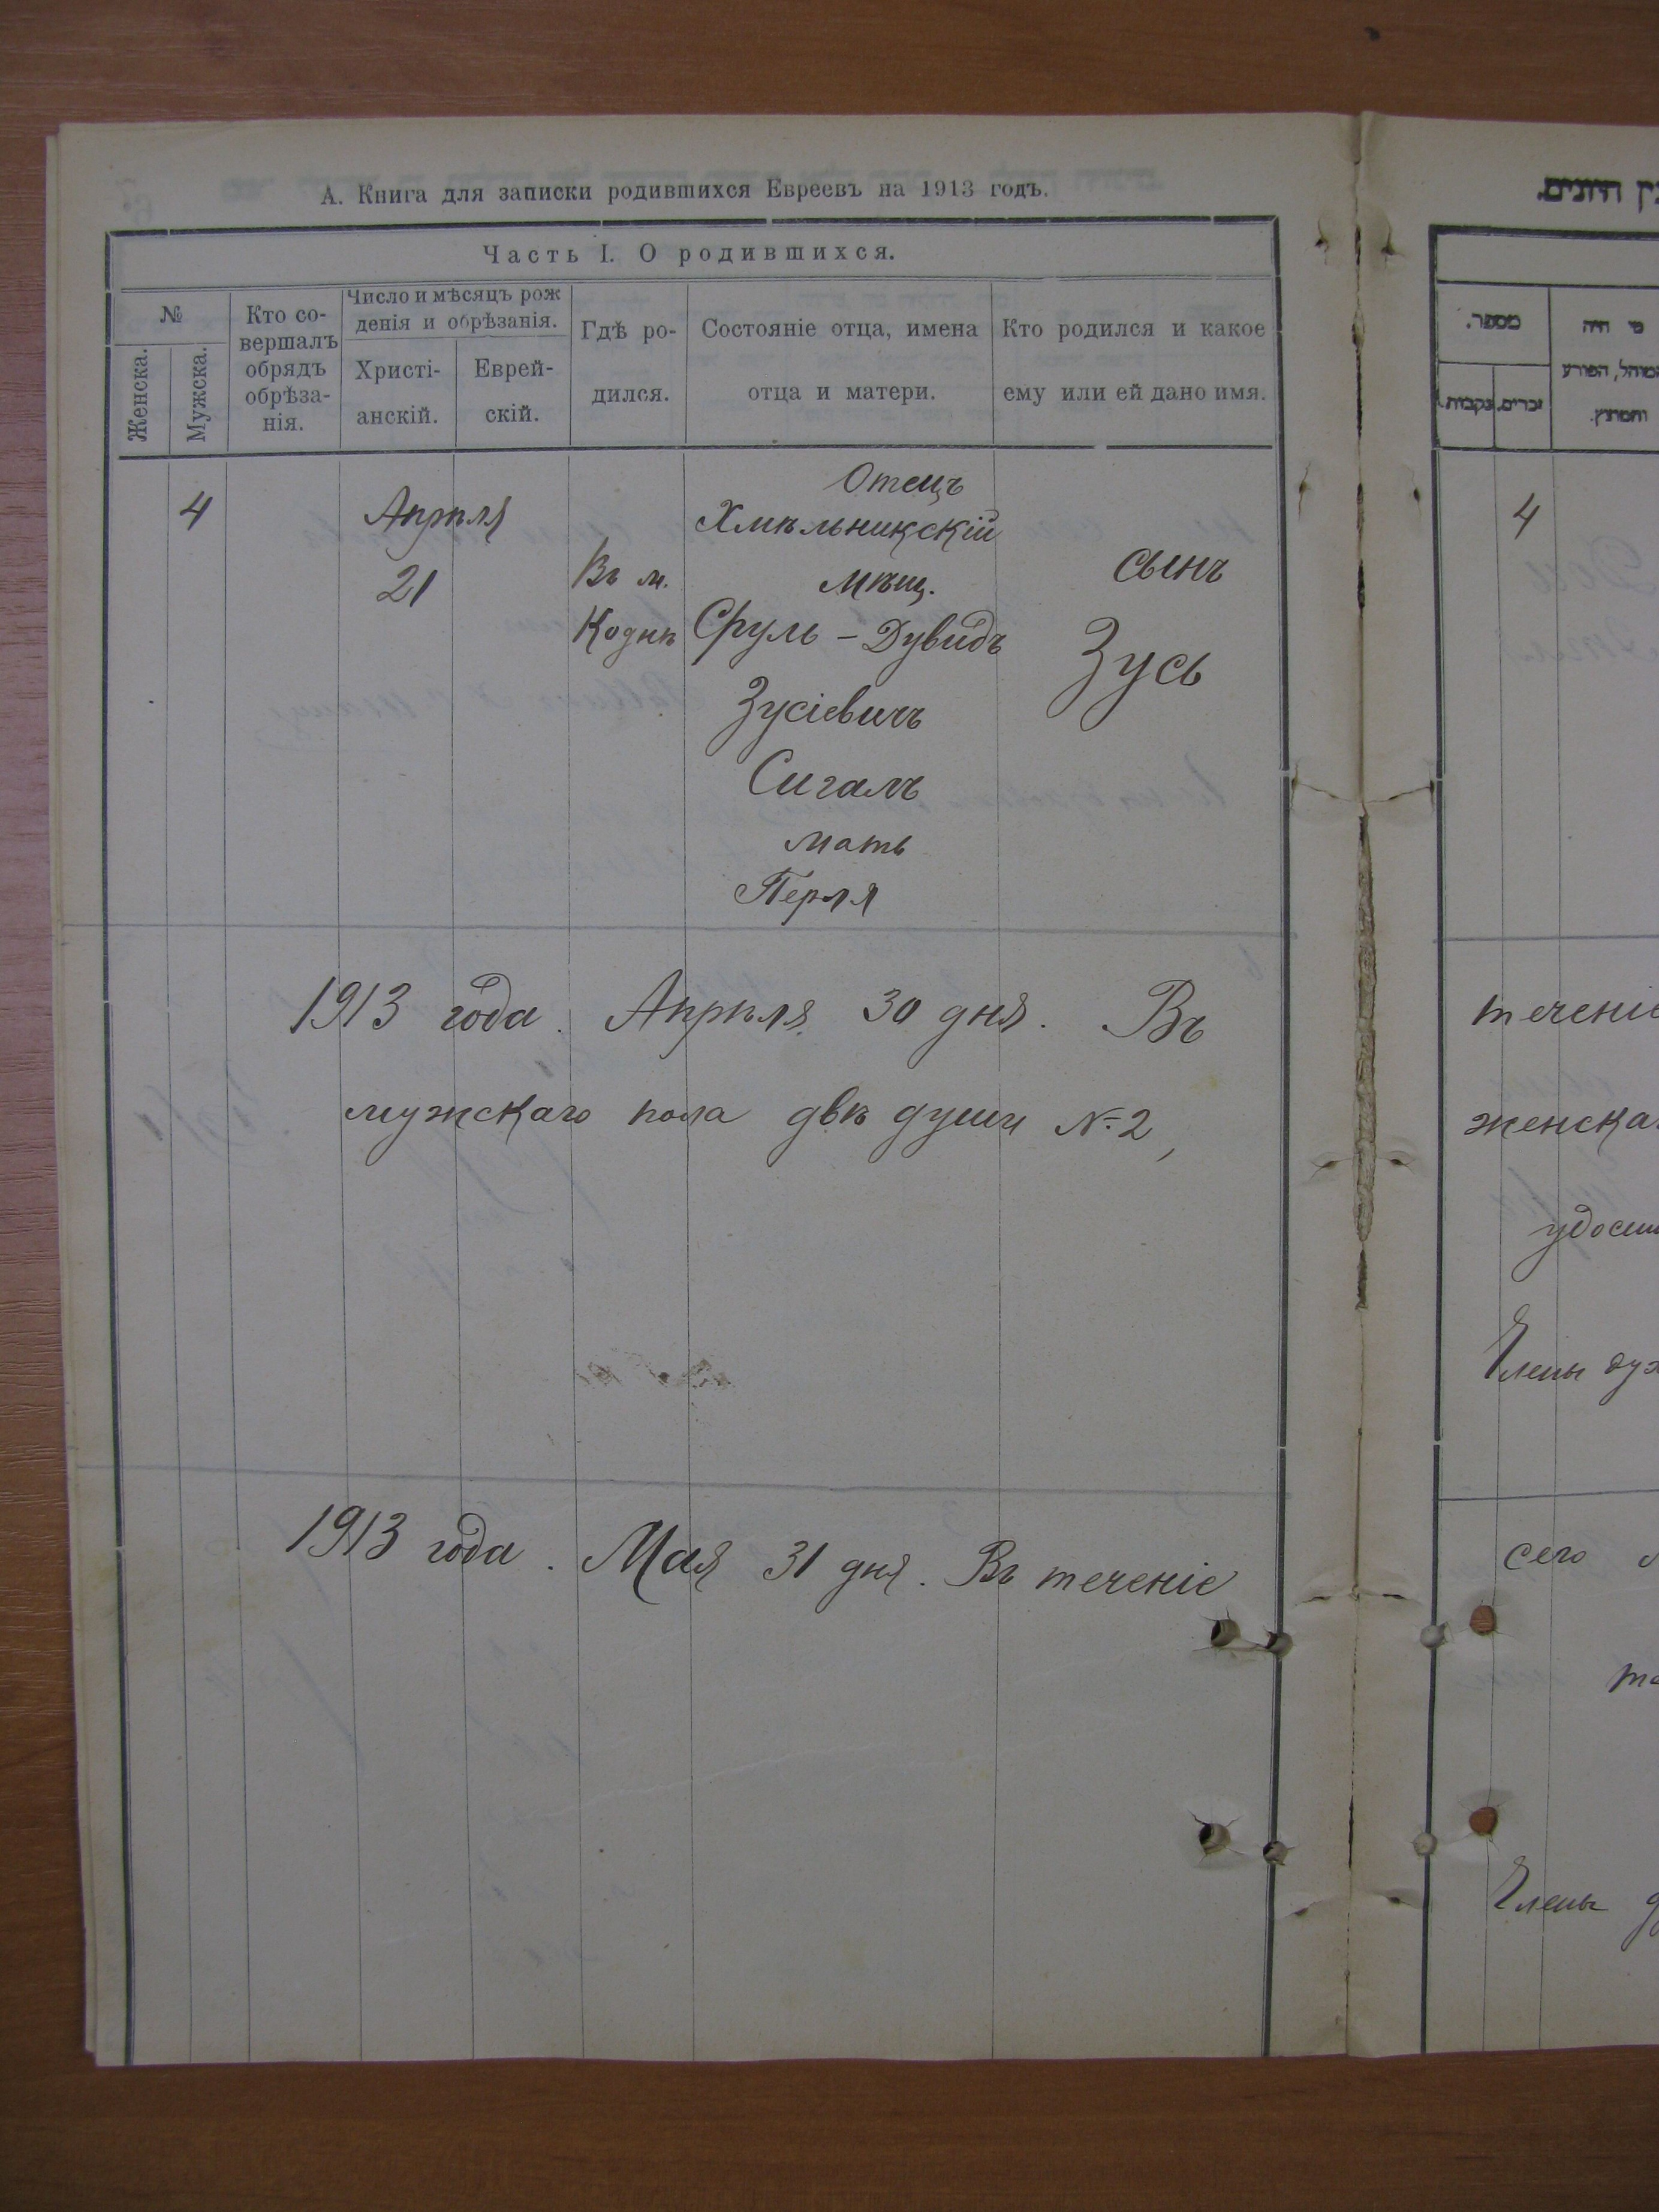 А. Книга для записки родившихся Евреевъ на 1913 годъ.
Часть I. О родившихся.
№
Женска.
Мужска.
Кто со-
вершалъ
обрядъ
обрѣза-
нія.
Число и мѣсяцъ рож
денія и обрѣзанія.
Христі-
анскій.
Еврей-
скій.
Гдѣ ро-
дился.
Состояніе отца, имена
отца и матери.
Кто родился и какое
ему или ей дано имя.
4
Апрѣля
21
Въ м.
Коднѣ
Отецъ
Хмѣльникскій
мѣщ.
Сруль - Дувидъ
Зусіевичъ
Сигалъ
мать
Перля
сынъ
Зусь
1913 года. Апрѣля 30 дня. Въ
мужскаго пола двѣ души №2,
1913 года. Мая 31 дня. Въ теченіе
מספר.
זכרים.
נקבות.
מי היה
המוהל, הפורע
והמוצץ.
4
теченіе
сего